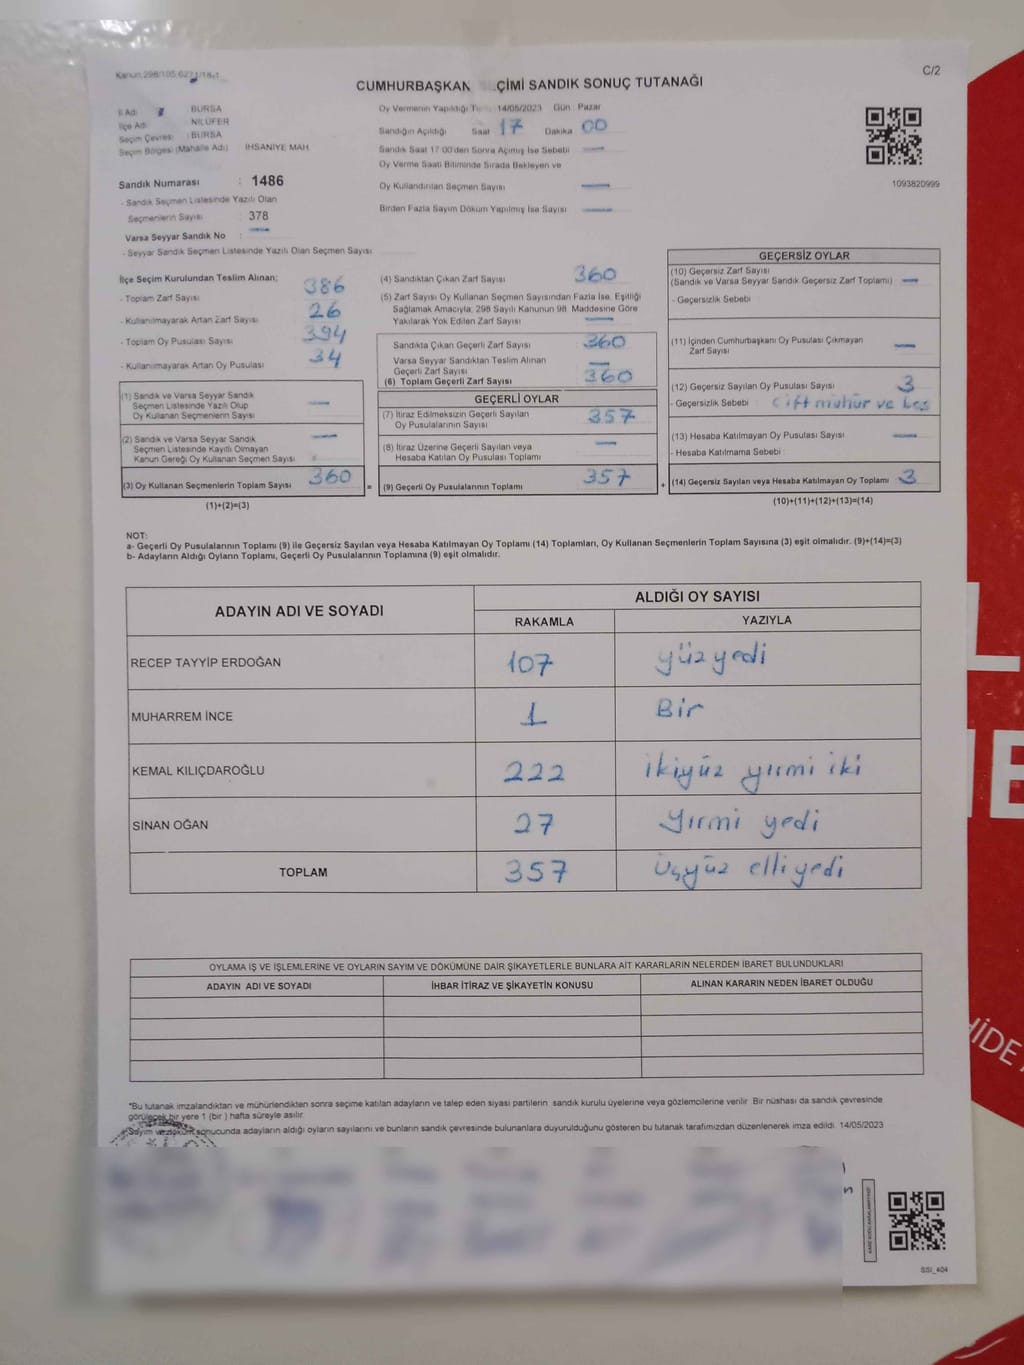 Kanun:298/105
C/2
CUMHURBAŞKAN ÇİMİ SANDIK SONUÇ TUTANAĞI
İl Adı : BURSA
İlçe Adı : NİLÜFER
Seçim Çevresi : BURSA
Seçim Bölgesi (Mahalle Adı) İHSANİYE MAH
Sandık Numarası : 1486
- Sandık Seçmen Listesinde Yazılı Olan
Seçmenlerin Sayısı : 378
Varsa Seyyar Sandık No : —
- Seyyar Sandık Seçmen Listesinde Yazılı Olan Seçmen Sayısı
Oy Vermenin Yapıldığı 14/05/2023 Gün Pazar
Sandığın Açıldığı Saat 17 Dakika 00
Sandık Saat 17:00'den Sonra Açılmış İse Sebebi —
Oy Verme Saati Bitiminde Sırada Bekleyen ve
Oy Kullandırılan Seçmen Sayısı —
Birden Fazla Sayım Döküm Yapılmış İse Sayısı —
1093820999
İlçe Seçim Kurulundan Teslim Alınan;
- Toplam Zarf Sayısı 386
- Kullanılmayarak Artan Zarf Sayısı 26
- Toplam Oy Pusulası Sayısı 394
- Kullanılmayarak Artan Oy Pusulası 34
(1) Sandık ve Varsa Seyyar Sandık
Seçmen Listesinde Yazılı Olup
Oy Kullanan Seçmenlerin Sayısı —
(2) Sandık ve Varsa Seyyar Sandık
Seçmen Listesinde Kayıtlı Olmayan
Kanun Gereği Oy Kullanan Seçmen Sayısı —
(3) Oy Kullanan Seçmenlerin Toplam Sayısı 360
(1)+(2)=(3)
=
(4) Sandıktan Çıkan Zarf Sayısı 360
(5) Zarf Sayısı Oy Kullanan Seçmen Sayısından Fazla İse, Eşitliği
Sağlamak Amacıyla; 298 Sayılı Kanunun 98. Maddesine Göre
Yakılarak Yok Edilen Zarf Sayısı —
Sandıkta Çıkan Geçerli Zarf Sayısı 360
Varsa Seyyar Sandıktan Teslim Alınan
Geçerli Zarf Sayısı —
(6) Toplam Geçerli Zarf Sayısı 360
GEÇERLİ OYLAR
(7) İtiraz Edilmeksizin Geçerli Sayılan
Oy Pusulalarının Sayısı 357
(8) İtiraz Üzerine Geçerli Sayılan veya
Hesaba Katılan Oy Pusulası Toplamı —
(9) Geçerli Oy Pusulalarının Toplamı 357
+
GEÇERSİZ OYLAR
(10) Geçersiz Zarf Sayısı
(Sandık ve Varsa Seyyar Sandık Geçersiz Zarf Toplamı) —
- Geçersizlik Sebebi
(11) İçinden Cumhurbaşkanı Oy Pusulası Çıkmayan
Zarf Sayısı —
(12) Geçersiz Sayılan Oy Pusulası Sayısı 3
- Geçersizlik Sebebi : Çift mühür ve boş
(13) Hesaba Katılmayan Oy Pusulası Sayısı —
- Hesaba Katılmama Sebebi
(14) Geçersiz Sayılan veya Hesaba Katılmayan Oy Toplamı 3
(10)+(11)+(12)+(13)=(14)
NOT:
a- Geçerli Oy Pusulalarının Toplamı (9) ile Geçersiz Sayılan veya Hesaba Katılmayan Oy Toplamı (14) Toplamları, Oy Kullanan Seçmenlerin Toplam Sayısına (3) eşit olmalıdır. (9)+(14)=(3)
b- Adayların Aldığı Oyların Toplamı, Geçerli Oy Pusulalarının Toplamına (9) eşit olmalıdır.
ADAYIN ADI VE SOYADI ALDIĞI OY SAYISI
RAKAMLA YAZIYLA
RECEP TAYYİP ERDOĞAN 107 yüzyedi
MUHARREM İNCE 1 Bir
KEMAL KILIÇDAROĞLU 222 ikiyüz yirmi iki
SİNAN OĞAN 27 yirmi yedi
TOPLAM 357 üçyüz elli yedi
OYLAMA İŞ VE İŞLEMLERİNE VE OYLARIN SAYIM VE DÖKÜMÜNE DAİR ŞİKAYETLERLE BUNLARA AİT KARARLARIN NELERDEN İBARET BULUNDUKLARI
ADAYIN ADI VE SOYADI İHBAR İTİRAZ VE ŞİKAYETİN KONUSU ALINAN KARARIN NEDEN İBARET OLDUĞU
*Bu tutanak imzalandıktan ve mühürlendikten sonra seçime katılan adayların ve talep eden siyasi partilerin sandık kurulu üyelerine veya gözlemcilerine verilir. Bir nüshası da sandık çevresinde
görülecek bir yere 1 (bir) hafta süreyle asılır.
Sayım ve döküm sonucunda adayların aldığı oyların sayılarını ve bunların sandık çevresinde bulunanlara duyurulduğunu gösteren bu tutanak tarafımızdan düzenlenerek imza edildi. 14/05/2023
SSI_404
HİDE